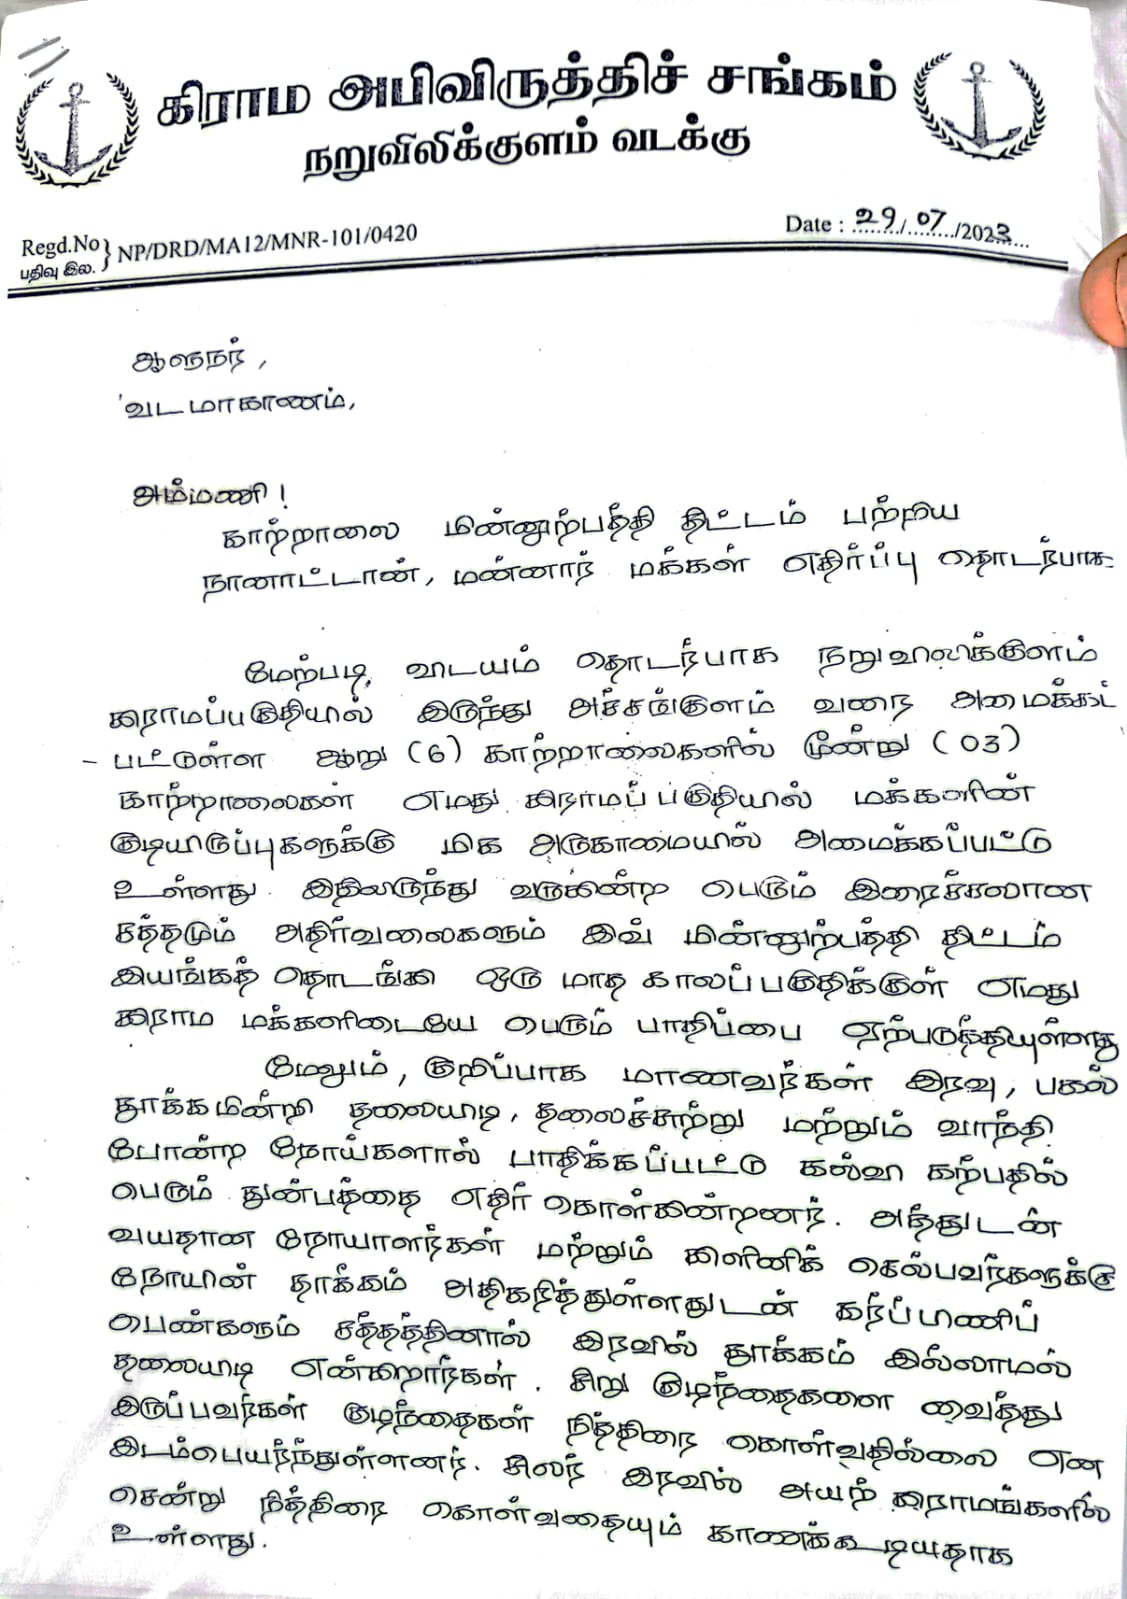 கிராம அபிவிருத்திச் சங்கம்
நறுவிலிக்குளம் வடக்கு
Regd.No } NP/DRD/MA12/MNR-101/0420
பதிவு இல.
Date : 29/07/2023
ஆளுநர்,
வடமாகாணம்,
அம்மணி!
காற்றாலை மின்னுற்பத்தி திட்டம் பற்றிய
நானாட்டான், மன்னார் மக்கள் எதிர்ப்பு தொடர்பாக-
மேற்படி விடயம் தொடர்பாக நறுவிலிக்குளம்
கிராமப்பகுதியில் இருந்து அச்சங்குளம் வரை அமைக்கப்
- பட்டுள்ள ஆறு (6) காற்றாலைகளில் மூன்று (03)
காற்றாலைகள் எமது கிராமப் பகுதியில் மக்களின்
குடியிருப்புகளுக்கு மிக அருகாமையில் அமைக்கப்பட்டு
உள்ளது. இதிலிருந்து வருகின்ற பெரும் இரைச்சலான
சத்தமும் அதிர்வலைகளும் இவ் மின்னுற்பத்தி திட்டம்
இயங்கத் தொடங்கி ஒரு மாத காலப்பகுதிக்குள் எமது
கிராம மக்களிடையே பெரும் பாதிப்பை ஏற்படுத்தியுள்ளது
மேலும், குறிப்பாக மாணவர்கள் இரவு, பகல்
தூக்கமின்றி தலையிடி, தலைச்சுற்று மற்றும் வாந்தி
போன்ற நோய்களால் பாதிக்கப்பட்டு கல்வி கற்பதில்
பெரும் துன்பத்தை எதிர் கொள்கின்றனர். அத்துடன்
வயதான நோயாளர்கள் மற்றும் கிளினிக் செல்பவர்களுக்கு
நோயின் தாக்கம் அதிகரித்துள்ளதுடன் கர்ப்பிணிப்
பெண்களும் சத்தத்தினால் இரவில் தூக்கம் இல்லாமல்
தலையிடி என்கிறார்கள். சிறு குழந்தைகளை வைத்து
இருப்பவர்கள் குழந்தைகள் நித்திரை கொள்வதில்லை என
இடம்பெயர்ந்துள்ளனர். சிலர் இரவில் அயற் கிராமங்களில்
சென்று நித்திரை கொள்வதையும் காணக்கூடியதாக
உள்ளது.